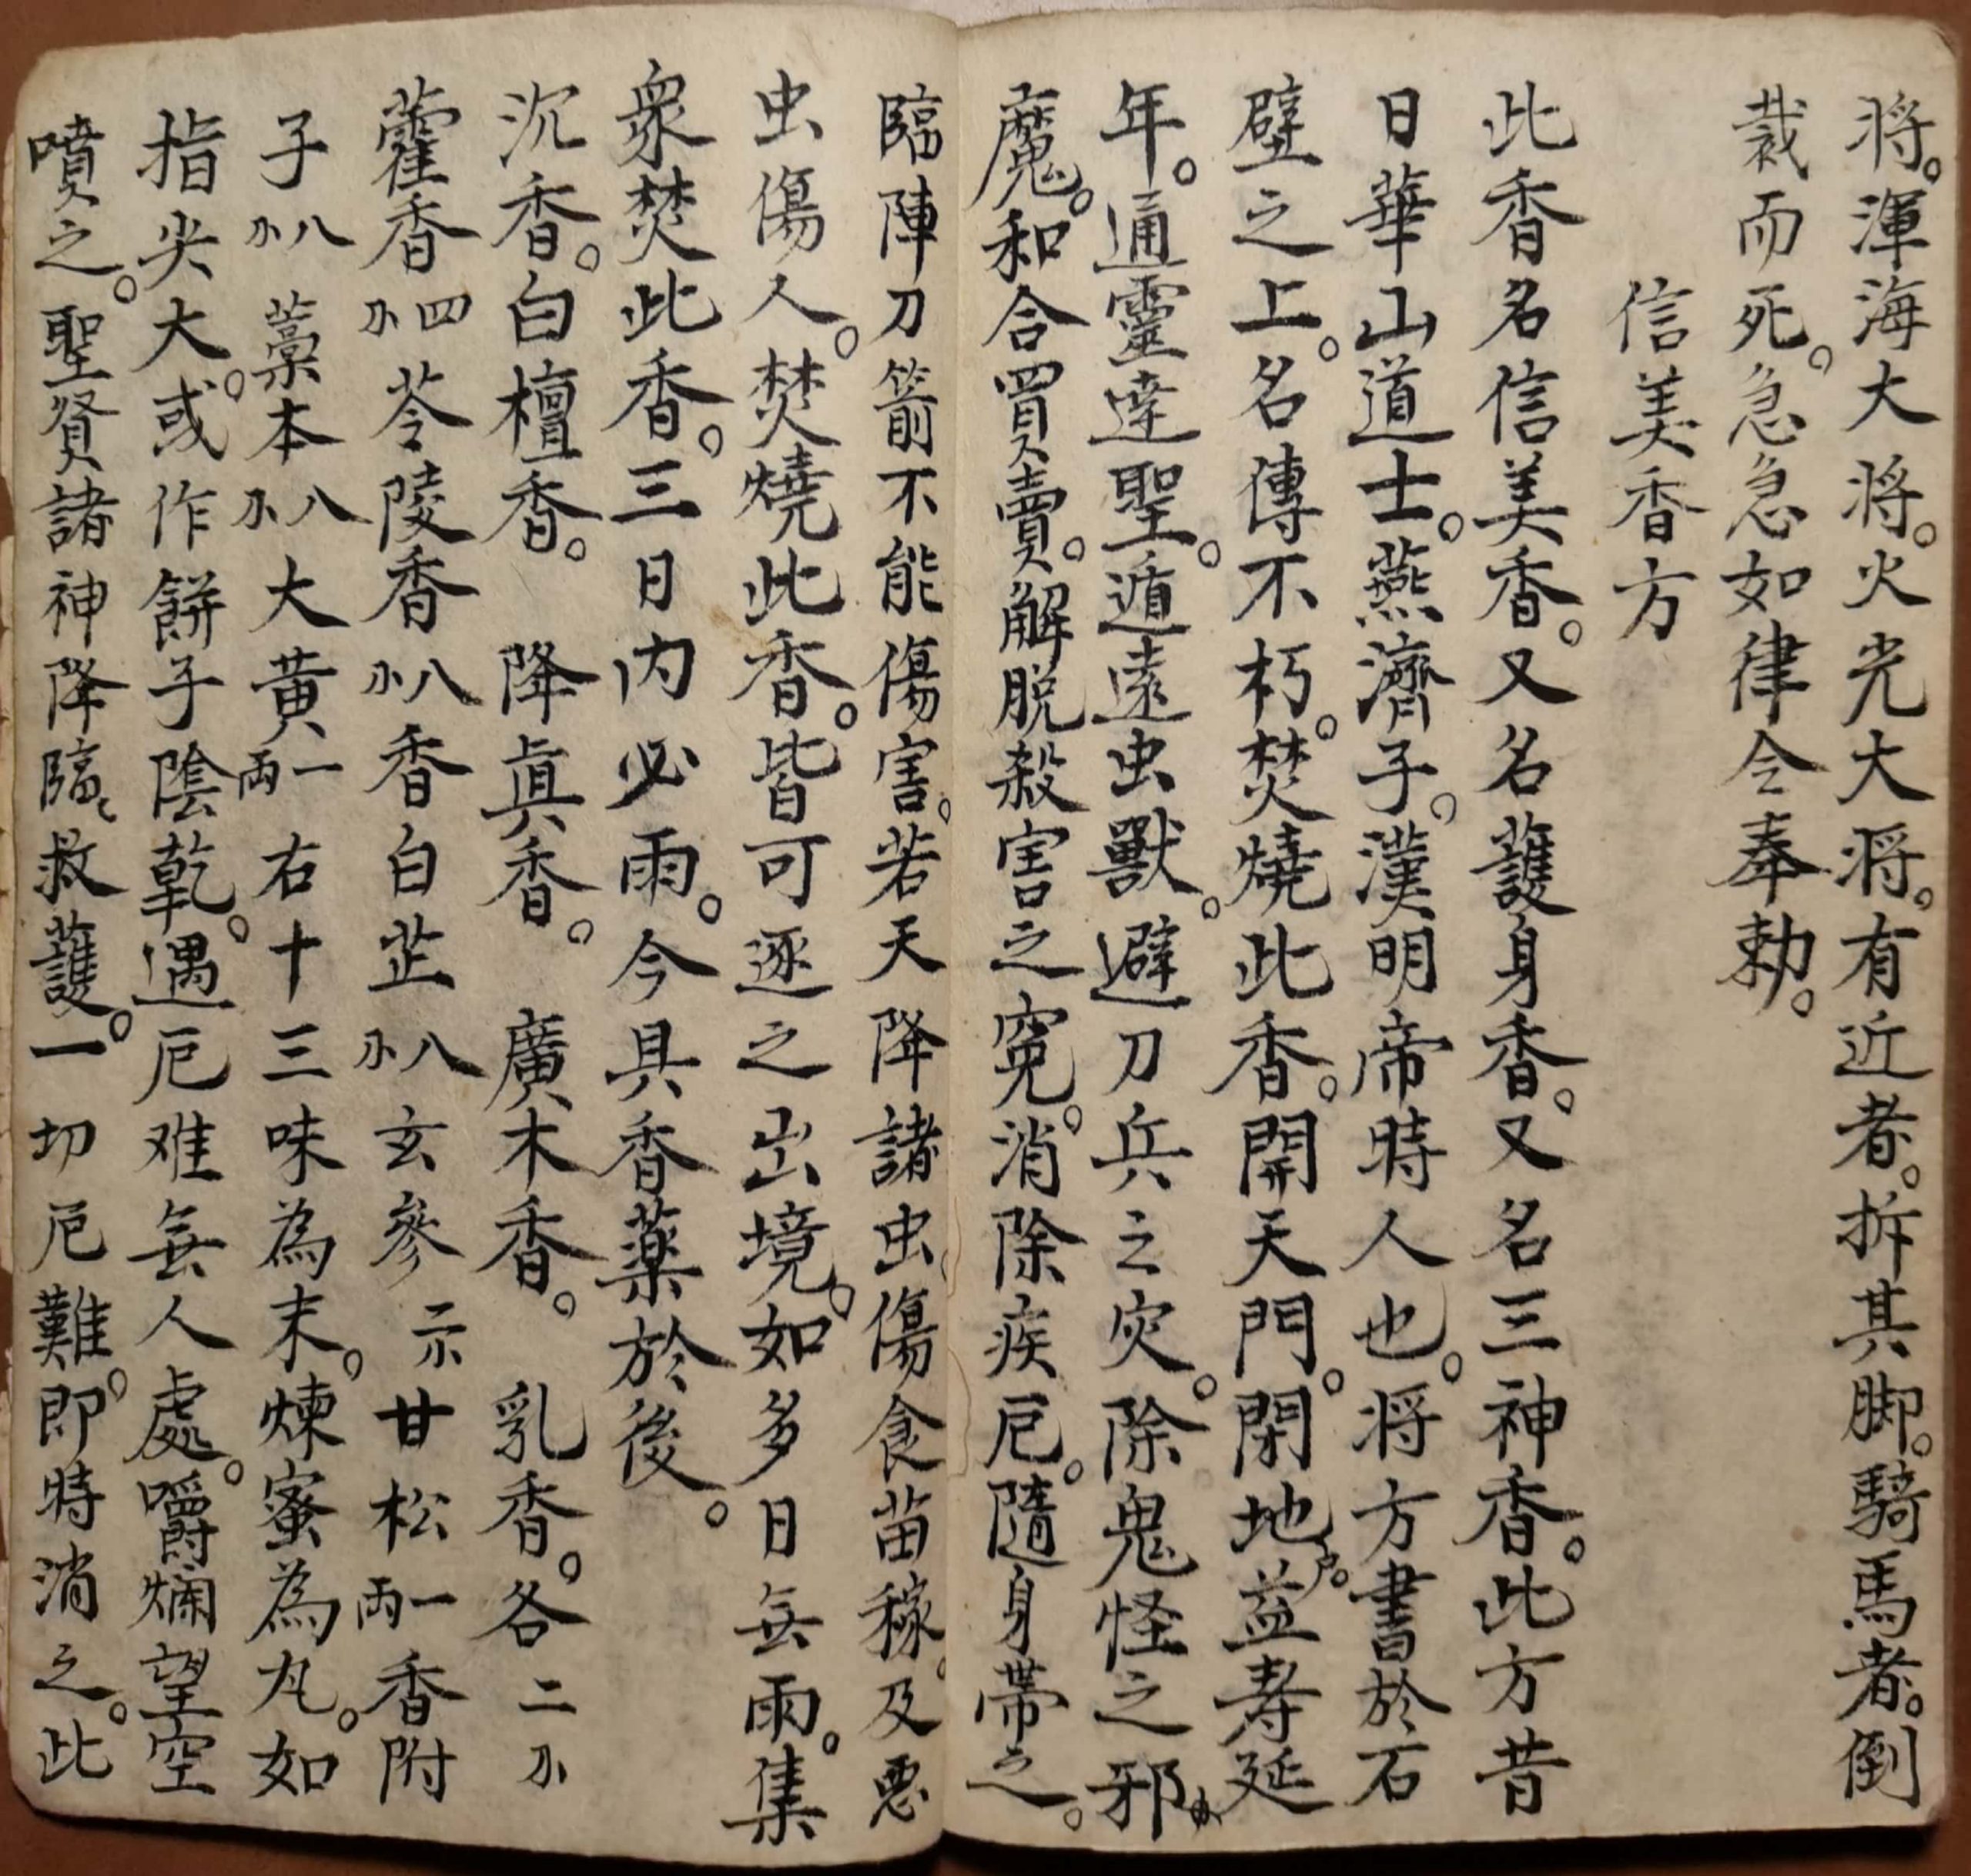 将。渾海大将。火光大将。有近者。拆其脚。騎馬者。倒
裁而死。急急如律令奉勅。
信美香方
此香名信美香。又名護身香。又名三神香。此方昔
日華山道士。燕濟子。漢明帝時人也。将方書於石
壁之上。名傳不朽。焚燒此香。開天門。閉地户。益寿延
年。通靈達聖。遁遠虫獸。避刀兵之灾。除鬼怪之邪
魔。和合買賣。解脱殺害之寃。消除疾厄。隨身帶之。
臨陣刀箭不能傷害。若天降諸虫傷食苗稼。及恶
虫傷人。焚燒此香。皆可逐之出境。如多日無雨。集
衆焚此香。三日内必雨。今具香藥於後。
沉香。白檀香。降真香。廣木香。乳香。各二小
藿香四小苓陵香八小香白芷八小玄參甘松一両香附
子八小藁本八小大黄一両右十三味為末。煉蜜為丸。如
指尖大。或作餅子陰乾。遇厄难無人處。嚼爛望空
噴之。聖賢諸神降臨、救護。一切厄難。即時消之。此